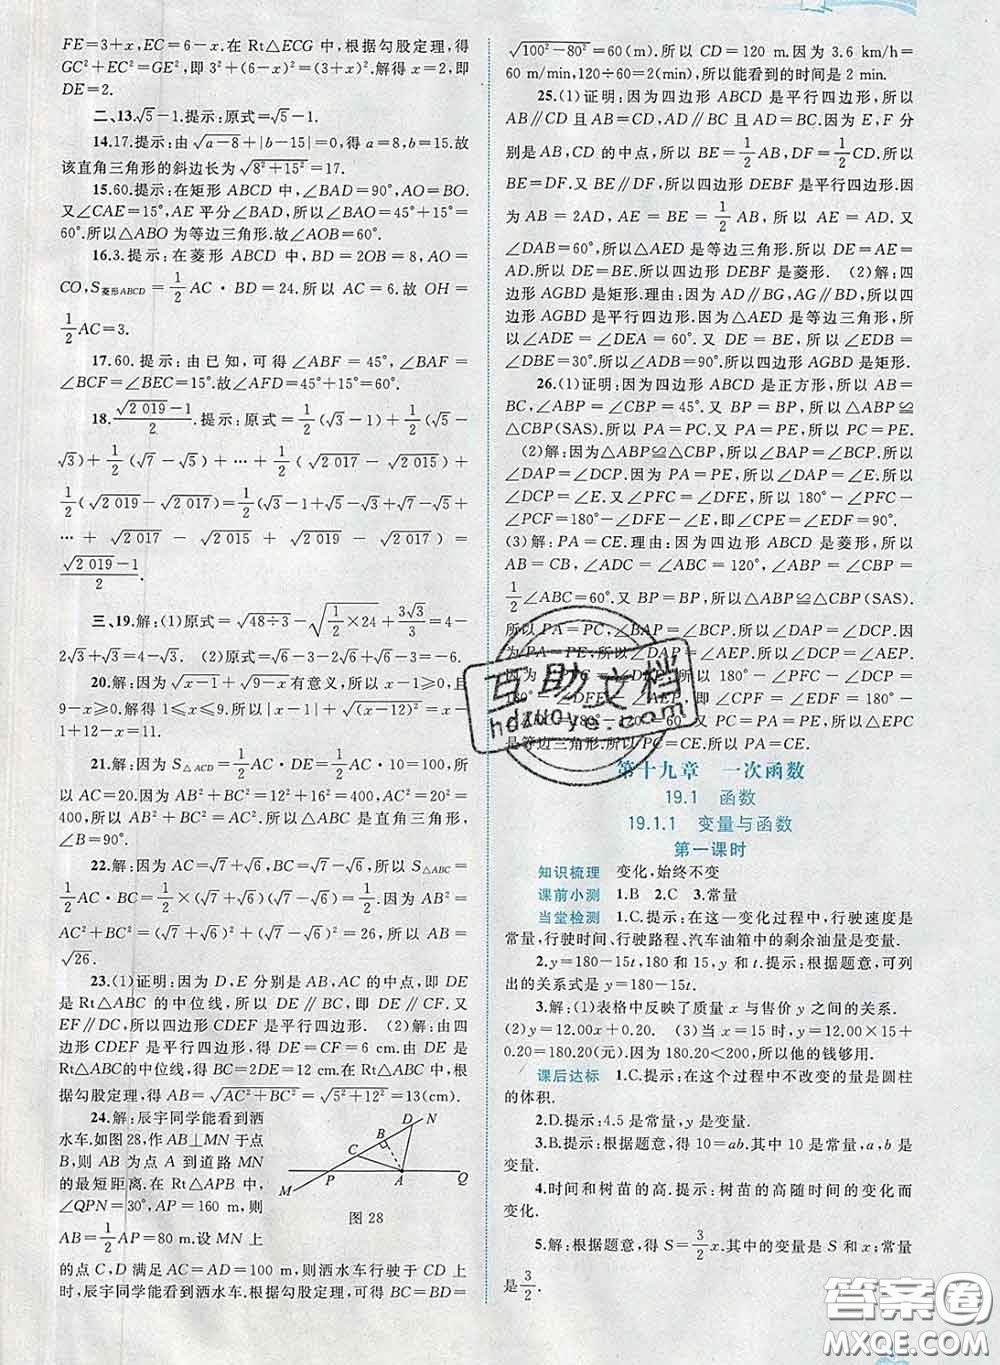 FE=3+x,EC=6-x.在 Rt△ECG 中,根据勾股定理,得
GC²+EC²=GE²,即 3²+(6-x)²=(3+x)².解得 x=2,即
DE=2.
二、13.√5-1.提示:原式=√5-1.
14.17.提示:由√(a-8)+|b-15|=0,得 a=8,b=15.故
该直角三角形的斜边长为√(8²+15²)=17.
15.60.提示:在矩形 ABCD 中,∠BAD=90°,AO=BO.
又∠CAE=15°,AE 平分∠BAD,所以∠BAO=45°+15°=
60°.所以△ABO 为等边三角形.故∠AOB=60°.
16.3.提示:在菱形 ABCD 中,BD=2OB=8,AO=
CO,S菱形ABCD=1/2 AC·BD=24.所以 AC=6.故 OH=
1/2 AC=3.
17.60.提示:由已知,可得∠ABF=45°,∠BAF=
∠BCF=∠BEC=15°.故∠AFD=45°+15°=60°.
18.(√2 019-1)/2.提示:原式=1/2(√3-1)+1/2(√5-
√3)+1/2(√7-√5)+…+1/2(√2 017-√2 015)+
1/2(√2 019-√2 017)=1/2(√3-1+√5-√3+√7-√5+
…+√2 017-√2 015+√2 019-√2 017)=
(√2 019-1)/2.
三、19.解:(1)原式=√(48÷3)-√(1/2×24)+3√3/3=4-
2√3+√3=4-√3. (2)原式=√6-3-2√6+√6-3=-6.
20.解:因为√(x-1)+√(9-x)有意义,所以 x-1⩾0,且
9-x⩾0.解得 1⩽x⩽9.所以|x-1|+√(x-12)²=x-
1+12-x=11.
21.解:因为 S△ACD=1/2 AC·CD=1/2 AC×30=300,所
以 AC=20.因为 AB²=12²=144,BC²=16²=256,AC²=20²=
400,所以 AB²+BC²=400=AC².所以△ABC 是直角三角形,
∠B=90°.
22.解:因为 AC=√7+√6,BC=√7-√6,所以 S△ABC=
1/2 AC×BC=1/2×(√7+√6)(√7-√6)=1/2.因为 AB²=
AC²+BC²=(√7+√6)²+(√7-√6)²=26,所以 AB=
√26.
23.(1)证明:因为 D,E 分别是 AB,AC 的中点,即 DE
是 Rt△ABC 的中位线,所以 DE∥BC,即 DE∥CF.又
EF∥DC,所以四边形 CDEF 是平行四边形. (2)解:由四
边形 CDEF 是平行四边形,得 DE=CF=6 cm.由 DE 是
Rt△ABC 的中位线,得 BC=2DE=12 cm.在 Rt△ABC 中,
根据勾股定理,得 AB=√(AC²+BC²)=√(5²+12²)=13(cm).
24.解:辰宇同学能看到洒
水车.如图28,作 AB⊥MN 于点
B,则 AB 为点 A 到道路 MN
的最短距离.在 Rt△APB 中,
∠QPN=30°,AP=160 m,则
AB=1/2 AP=80 m.设 MN 上
N
D
B
C
M
P
A
Q
图 28
的点 C,D 满足 AC=AD=100 m,则洒水车行驶于 CD 上
时,辰宇同学能看到洒水车.根据勾股定理,可得 BC=BD=
√(100²-80²)=60(m).所以 CD=120 m.因为 3.6 km/h=
60 m/min,120÷60=2(min),所以能看到的时间是 2 min.
25.(1)证明:因为四边形 ABCD 是平行四边形,所以
AB∥CD 且 AB=CD,AD∥BC,AD=BC.因为 E,F 分
别是 AB,CD 的中点,所以 BE=1/2 AB,DF=1/2 CD.所以
BE=DF.又 BE∥DF,所以四边形 DEBF 是平行四边形.
因为 AB=2AD,AE=BE=1/2 AB,所以 AD=AE.又
∠DAB=60°,所以△AED 是等边三角形.所以 DE=AE=
AD.所以 DE=BE.所以四边形 DEBF 是菱形. (2)解:四
边形 AGBD 是矩形.理由:因为 AD∥BG,AG∥BD,所以四
边形 AGBD 是平行四边形.因为△AED 是等边三角形,所
以∠ADE=∠DEA=60°.又 DE=BE,所以∠EDB=
∠DBE=30°.所以∠ADB=90°.所以四边形 AGBD 是矩形.
26.(1)证明:因为四边形 ABCD 是正方形,所以 AB=
BC,∠ABP=∠CBP=45°.又 BP=BP,所以△ABP≌
△CBP(SAS).所以 PA=PC.又 PA=PE,所以 PC=PE.
(2)解:因为△ABP≌△CBP,所以∠BAP=∠BCP.所以
∠DAP=∠DCP.因为 PA=PE,所以∠DAP=∠E.所以
∠DCP=∠E.又∠PFC=∠DFE,所以 180°-∠PFC-
∠PCF=180°-∠DFE-∠E,即∠CPE=∠EDF=90°.
(3)解:PA=CE.理由:因为四边形 ABCD 是菱形,所以
AB=CB,∠ADC=∠ABC=120°,∠ABP=∠CBP=
1/2∠ABC=60°.又 BP=BP,所以△ABP≌△CBP(SAS).
所以 PA=PC,∠BAP=∠BCP.所以∠DAP=∠DCP.因
为 PA=PE,所以∠DAP=∠E.所以∠DCP=∠E.又
∠PFC=∠DFE,所以 180°-∠PFC-∠FCP=180°-
∠EDF=180°-120°=60°.又 PC=PE,所以△EPC
是等边三角形.所以 PC=CE.所以 PA=CE.
第十九章 一次函数
19.1 函数
19.1.1 变量与函数
第一课时
知识梳理 变化,始终不变
课前小测 1.B 2.C 3.常量
当堂检测 1.C.提示:在这一变化过程中,行驶速度是
常量,行驶时间、行驶路程、汽车油箱中的剩余油量是变量.
2.y=180-15t,180 和 15,y 和 t.提示:根据题意,可列
出的关系式是 y=180-15t.
3.解:(1)表格中反映了质量 x 与售价 y 之间的关系.
(2)y=12.00x+0.20. (3)当 x=15 时,y=12.00×15+
0.20=180.20(元).因为 180.20<200,所以他的钱够用.
课后达标 1.C.提示:在这个过程中不改变的量是圆柱
的体积.
2.D.提示:4.5 是常量,y 是变量.
3.B.提示:根据题意,得 10=ab.其中 10 是常量,a,b 是
变量.
4.时间和树苗的高.提示:树苗的高随时间的变化而
变化.
5.解:根据题意,得 S=3/2 x.其中的变量是 S 和 x;常量
是 3/2.
互助文档
hdzuoye.com
答案圈
MXQE.COM